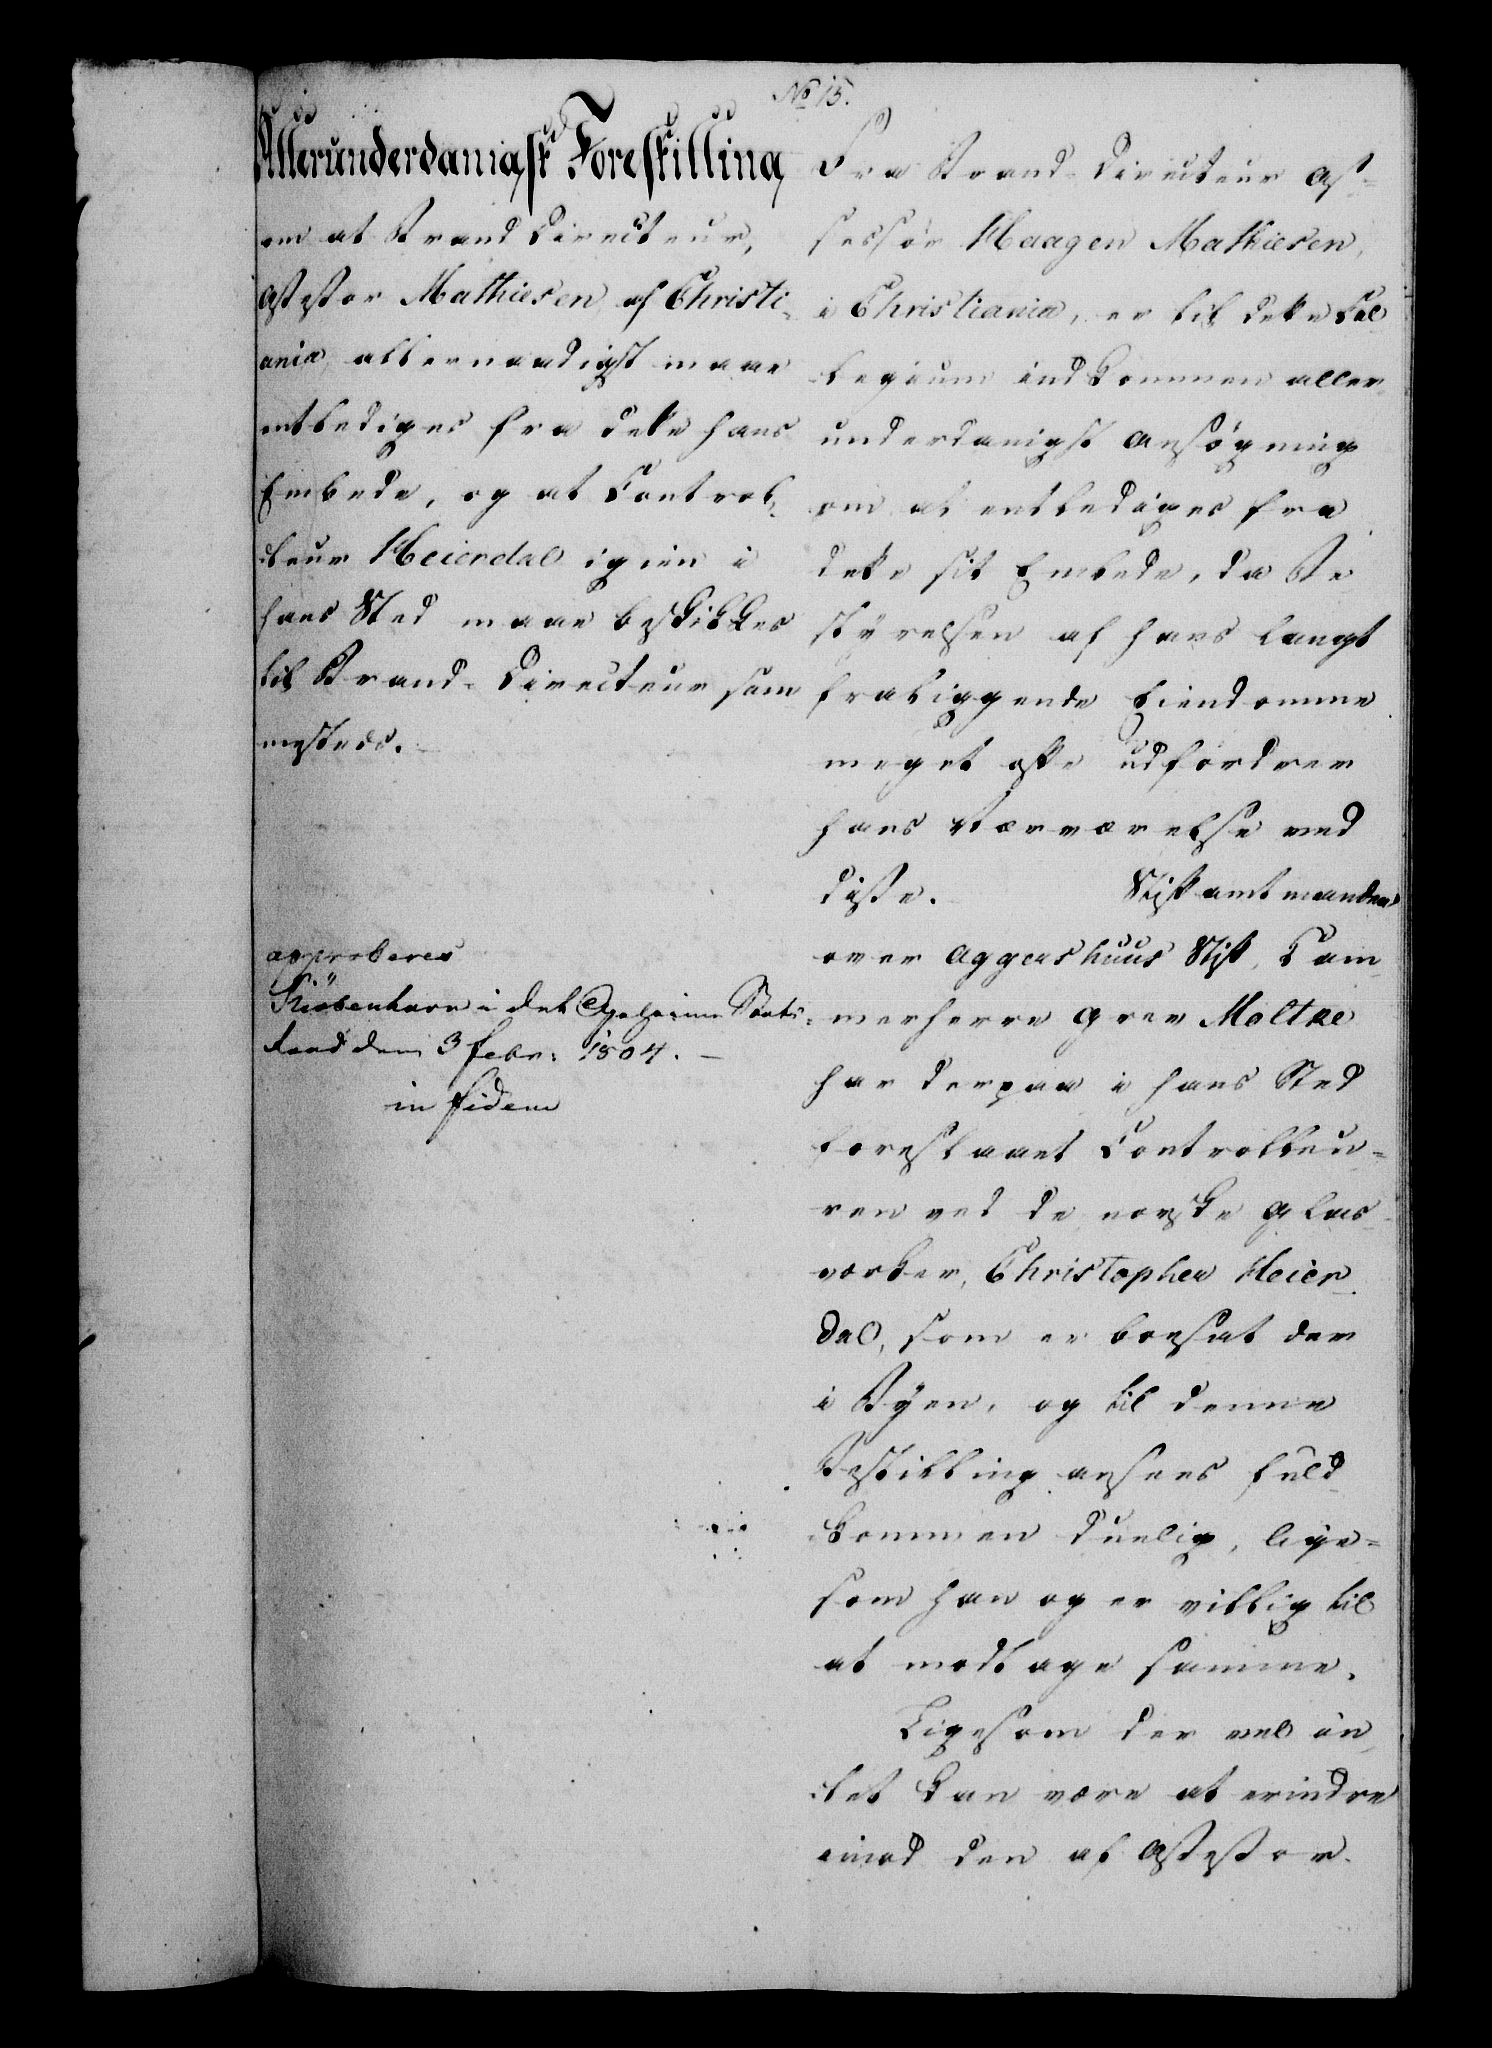 No 15.
Allerunderdanigst Forestilling
om at Brand-Directeur,
Assessor Mathiesen af Christi-
ania, allernaadigst maae
entlediges fra dette hans
Embede, og at Control-
leur Heierdal igien i
hans Sted maae beskikkes
til Brand-Directeur sam-
mesteds.
approberes
Kiöbenhavn i det Geheime Stats-
Raad den 3 Febr: 1804.
in fidem
Fra Brand-Directeur As-
sessor Haagen Mathiesen,
i Christiania, er til dette Col-
legium indkommen aller-
underdanigst Ansøgning
om at entlediges fra
dette sit Embede, da Be-
styrelsen af hans langt
fraliggende Eiendomme
meget ofte udfordrer
hans Nærværelse ved
disse. Stiftamtmanden
over Aggershuus Stift, Kam-
merherre Grev Moltke
har derpaa i hans Sted
foreslaaet Controlleu-
ren ved de norske Glas-
værker, Christopher Heier-
dal, som er boesat der
i Byen, og til denne
Bestilling ansees fuld-
kommen duelig, lige-
som han og er villig til
at modtage samme.
Ligesom der vel in-
tet kan være at erindre
imod den af Assessor